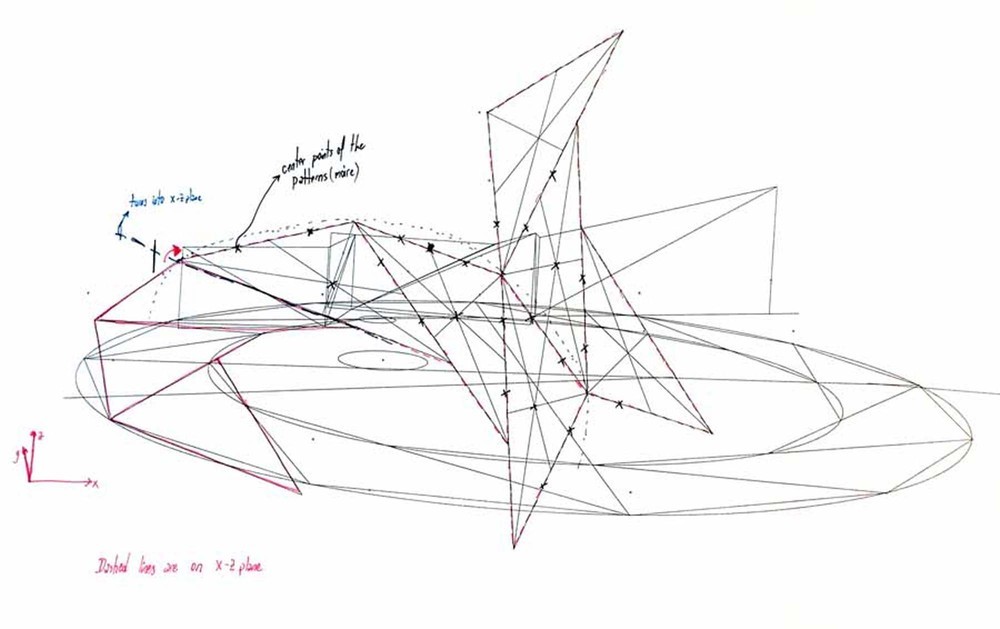 center points of the
patterns (more)
turns into x-z plane
z
y
x
Dashed lines are on x-z plane